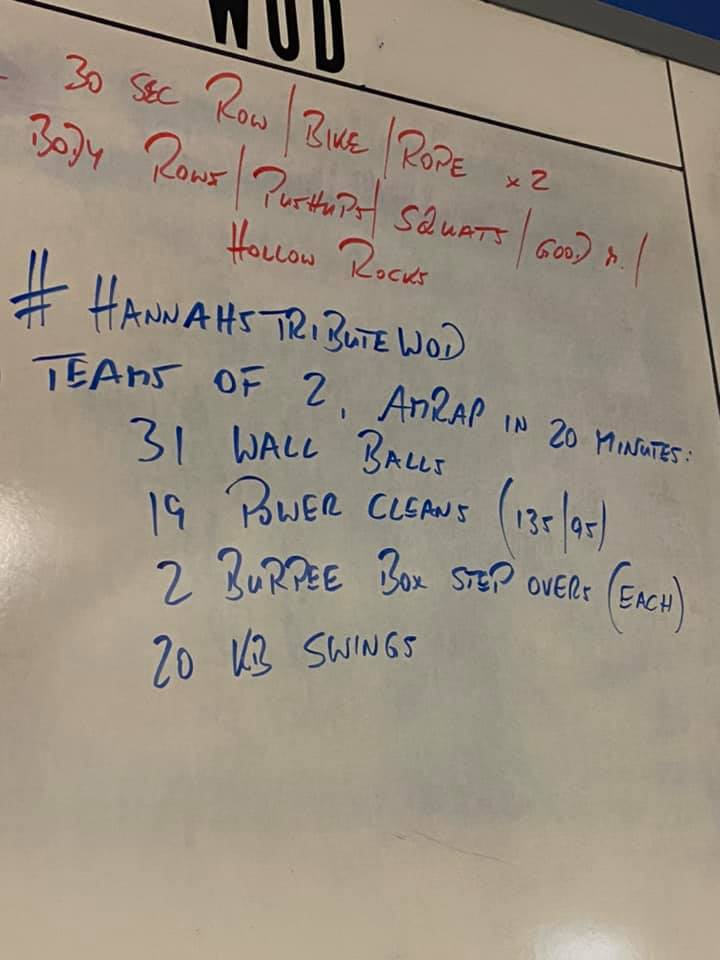 WOD
- 30 SEC ROW / BIKE / ROPE x 2
BODY ROWS / PUSHUPS / SQUATS / GOOD M. /
HOLLOW ROCKS
# HANNAHSTRIBUTEWOD
TEAMS OF 2, AMRAP IN 20 MINUTES:
31 WALL BALLS
19 POWER CLEANS (135/95)
2 BURPEE BOX STEP OVERS (EACH)
20 KB SWINGS